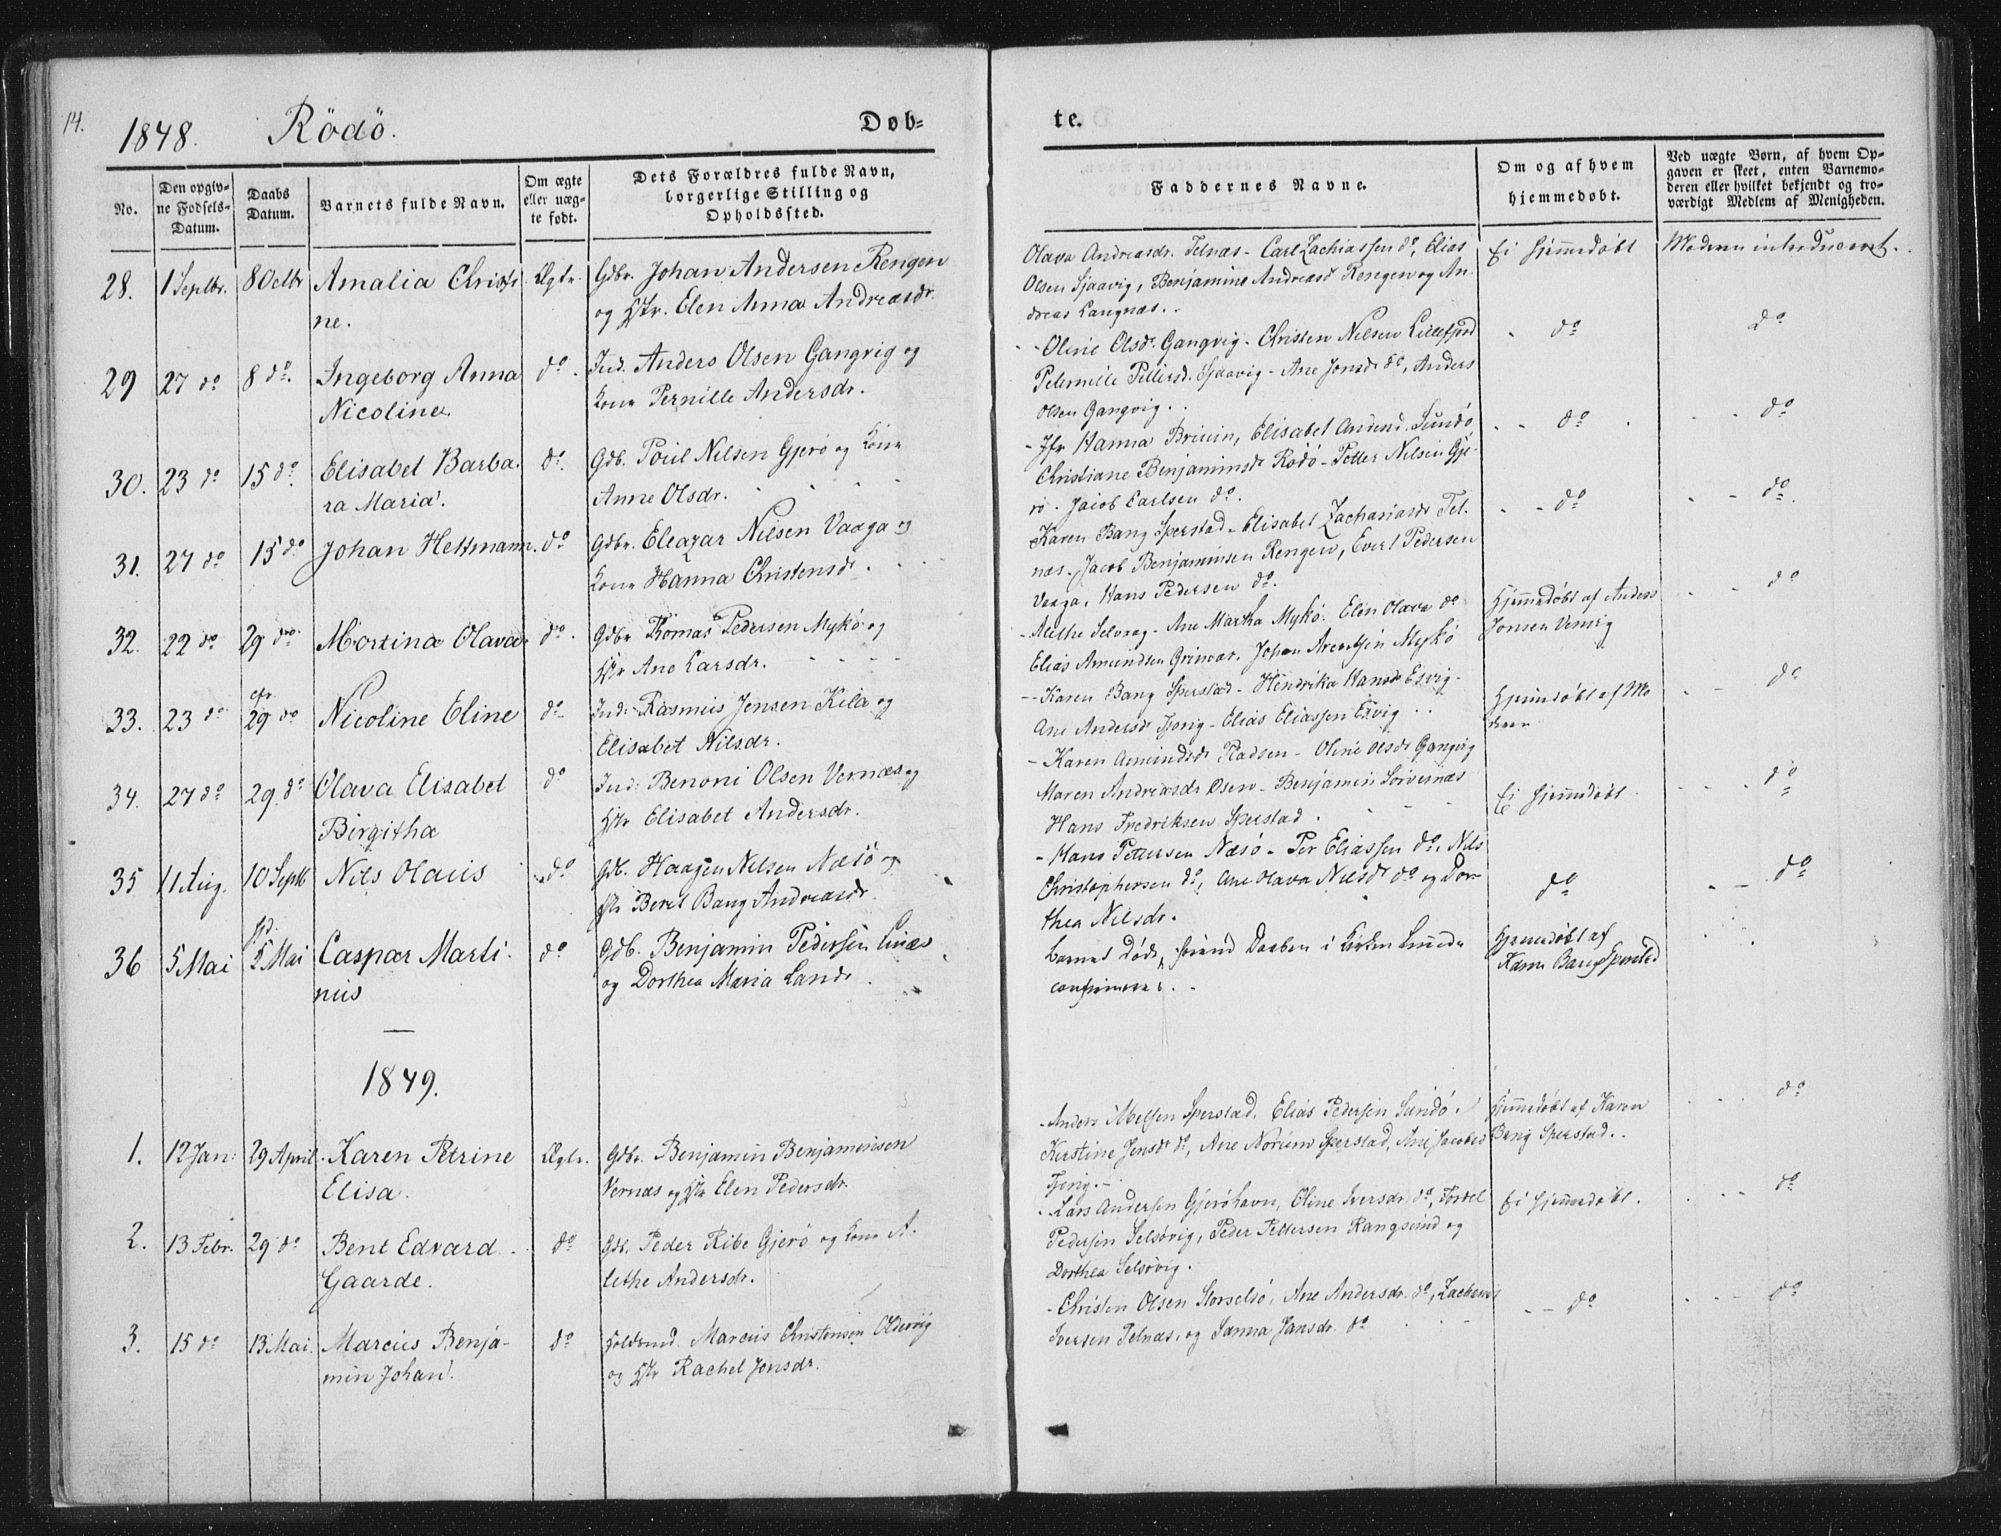 14.
1848. Rödö. Döb-
te.
No.
Den opgiv-
ne Fødsels-
Datum.
Daabs
Datum.
Barnets fulde Navn.
Om ægte
eller uæg-
te født.
Dets Forældres fulde Navn,
borgerlige Stilling og
Opholdssted.
Faddernes Navne.
Om og af hvem
hjemmedøbt.
Ved uægte Børn, af hvem Op-
gaven er skeet, enten Barnemo-
deren eller hvilket bekjendt og tro-
værdigt Medlem af Menigheden.
28. 1 Septbr. 8 Octbr Amalia Christi
ne.
Ægte. Gdbr. Johan Andersen Rengen
og Hstr. Elen Anna Andreasdr.
Olava Andreasdr. Telnæs - Carl Zachiassen do, Elias
Olsen Sjaavig, Benjamine Andreasd Rengen og An
dreas Langnæs.
Ei hjemmedøbt
Moderen introduceret.
29 27 do 8 do. Ingeborg Anna
Nicoline.
do. Ind. Anders Olsen Gangvig og
Kone Pernille Andersdr.
- Oline Olsdr. Gangvig - Christen Nilsen Lillefjord
Peternille Pettersd. Sjaavig - Ane Jonsdr do, Anders
Olsen Gangvig.
do
do
30. 23 do 15 do. Elisabet Barba
ra Maria.
do. Gdb. Poül Nilsen Gjerö og Kone
Anne Olsdr.
- Jfr Hanna Bruun, Elisabet Andersd. Sundö,
Christiane Benjaminsdr Rödö - Petter Nilsen Gje-
rö - Jacob Carlsen do.
do
do
31. 27 do 15 do Johan Heltmann
do Gdbr. Eleazar Nilsen Vaaga og
Kone Hanna Christensdr.
Karen Bang Sperstad - Elisabet Zachariasdr Tel-
næs - Jacob Benjaminsen Rengen, Evert Pedersen
Vaaga, Hans Pedersen do.
do
do.
32. 22 do 29 do Martina Olava
do. Gdbr Thomas Pedersen Mykö og
Hstr Ane Larsdr.
- Alethe Selvaag - Ane Martha Mykö. Elen Olava do
Elias Amundsen Grinvær. Johan Arentsen Mykö
Hjemmedøbt af Anders
Jonsen Vennig
do
33. 23 do 29 do Nicoline Eline
do Ind: Rasmus Jensen Kila og
Elisabet Nilsdr.
- Karen Bang Sperstad - Hendrika Hansdr Esvig -
Ane Andersdr Tjong - Elias Eliassen Esvig
Hjemmedøbt af Mo
deren
do
34. 27 do 29. do Olava Elisabet
Birgitha
do Ind: Benoni Olsen Vernæs og
Hstr Elisabet Andersdr.
- Karen Amundsdr Pladsen - Oline Olsdr Gangvig
Maren Andreasdr Osen - Benjamin Sörvernæs
Hans Fredriksen Sperstad.
Ei hjemmedøbt
do
35 11 Aug. 10 Septb Nils Olaüs
do Gdb. Haagen Nilsen Næsö og
Hstr Beret Bang Andreasdr.
- Hans Pettersen Næsö - Per Eliassen do. Nils
Christophersen do, Ane Olava Nilsdr do og Dor
thea Nilsdr.
do
do
36 5 Mai 5 Mai Caspar Marti
nüs
do Gdb. Benjamin Pedersen Linæs
og Dorthea Maria Landr.
Barnet döde, forend Daaben i Kirken kunde
confirmeres.
Hjemmedøbt af
Karen Bang Sperstad
1849.
1. 12 Jan: 29 April. Karen Petrine
Elisa.
Ægte. Gdbr. Benjamin Benjaminsen
Vernæs og Hstr Elen Pedersdr.
Anders Nielsen Sperstad. Elias Pedersen Sundö.
Kirstine Jensdr do, Ane Norum Sperstad, Ane Jacobsd
Tjong.
Hjemmedøbt af Karen
Bang Sperstad.
do
2. 13 Febr. 29 do Bent Edvard
Gaarde.
do Gdb. Peder Ribe Gjerö og Kone A-
lethe Andersdr.
- Lars Andersen Gjeröhavn, Oline Iversdr. do, Torkel
Pedersen Selsövig, Peder Pettersen Rangsund og
Dorthea Selsövig.
Ei hjemmedøbt.
do
3. 15 do 13 Mai. Marcüs Benja-
min Johan.
do Foldsmd. Marcus Christensen Oldervig
og Hstr Rachel Jonsdr.
- Christen Olsen Storselsö, Ane Andersdr. do, Zacharias
Iversen Telnæs, og Sanna Jansdr. do
do
do